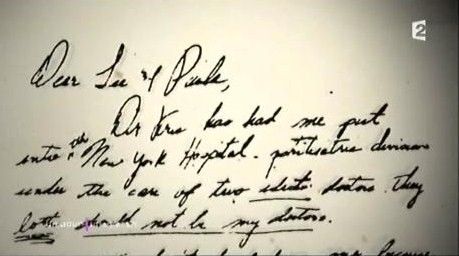 2
Dear Lee & Paula,
Dr Kris has had me put
into the New York Hospital - division
under the care of two idiot doctors they
both should not be my doctors.